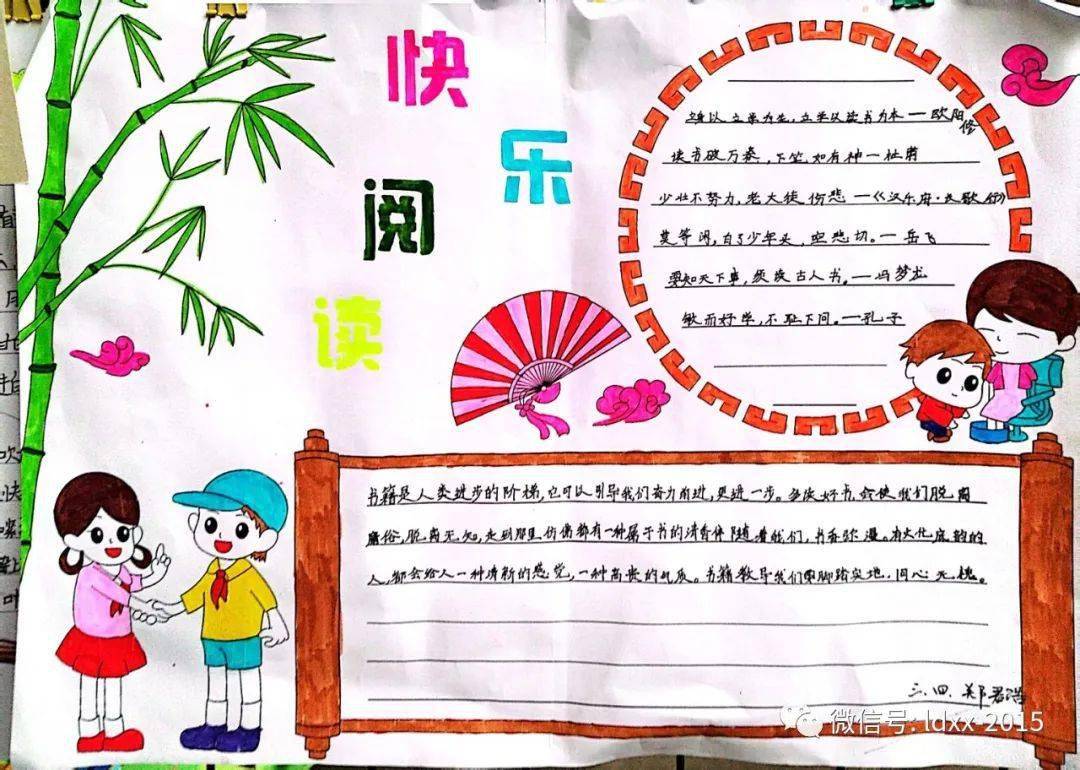 快
乐
阅
读
立身以立学为先，立学以读书为本一欧阳修
读书破万卷，下笔如有神一杜甫
少壮不努力，老大徒伤悲一《汉乐府·长歌行》
莫等闲，白了少年头，空悲切。一岳飞
要知天下事，须读古人书。一冯梦龙
敏而好学，不耻下问。一孔子
书籍是人类进步的阶梯，它可以引导我们奋力前进，更进一步。多读好书，会使我们脱离
庸俗，脱离无知，走到那里仿佛都有一种属于书的清香伴随着我们，书香弥漫。有文化底韵的
人，都会给人一种清新的感觉，一种高贵的气质。书籍教导我们要脚踏实地，问心无愧。
三.四.郑君浩
微信号: ldxx-2015